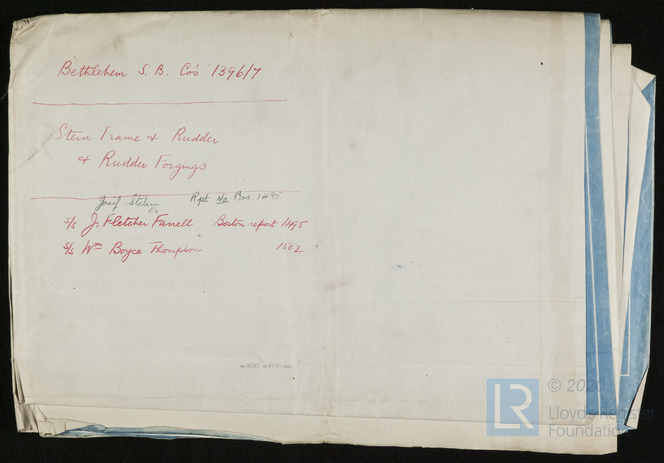 Bethlehem S. B. Co's 1396/7
Stern Frame & Rudder
& Rudder Forgings
Josif Stalin Rpt No Bos 1495
Ex
s/s J. Fletcher Farrell Boston report 1495
s/s Wm Boyce Thompson 1502
LR
© 2020
Lloyd's Register
Foundation